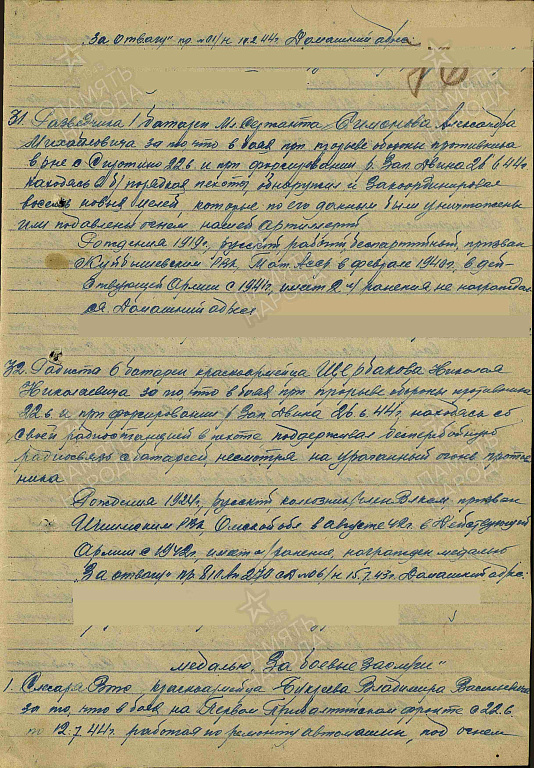 „За отвагу" пр №01/н 14.2.44г. Домашний адрес:
31. Разведчика 1 батареи Мл. Сержанта Симонова Александра
Михайловича за то, что в боях при прорыве обороны противника
в р-не с Сиротино 22.6 и при форсировании р. Зап. Двина 26.6.44г.
находясь в б/порядках пехоты, обнаружил и Закоординировал
восемь новых целей, которые по его данным были уничтожены
или подавлены огнем нашей артиллерии
Рождения 1919г., русский, рабочий беспартийный, призван
Куйбышевским РВК, Тат. Асср. в феврале 1940г., в дей-
ствующей Армии с 1941г, имеет 2 ранения, не награждал-
ся. Домашний адрес
32. Радиста 6 батареи красноармейца Щербакова Николая
Николаевича за то, что в боях при прорыве обороны противника
22.6 и при форсировании р Зап. Двина 26.6.44г. находясь со
своей радиостанцией в пехоте поддерживал бесперебойную
радиосвязь с батареей, несмотря на ураганный огонь против-
ника
Рождения 1924г., русский, колхозник, член Влксм, призван
Ишимским РВК, Омской обл в августе 42г. в Действующей
Армии с 1942г. имеет ранения, награжден медалью
„За отвагу" пр 270 сд №06/н 15.7.43г. Домашний адрес:
медалью „За боевые заслуги"
1. Слесаря красноармейца Букреева Владимира Васильевича
за то, что в боях на Первом Прибалтийском фронте с 22.6
по 12.7.44г. работая по ремонту автомашин, под огнем
ПАМЯТЬ
НАРОДА
ПАМЯТЬ
НАРОДА
ПАМЯТЬ
НАРОДА
ПАМЯТЬ
НАРОДА
ПАМЯТЬ
НАРОДА